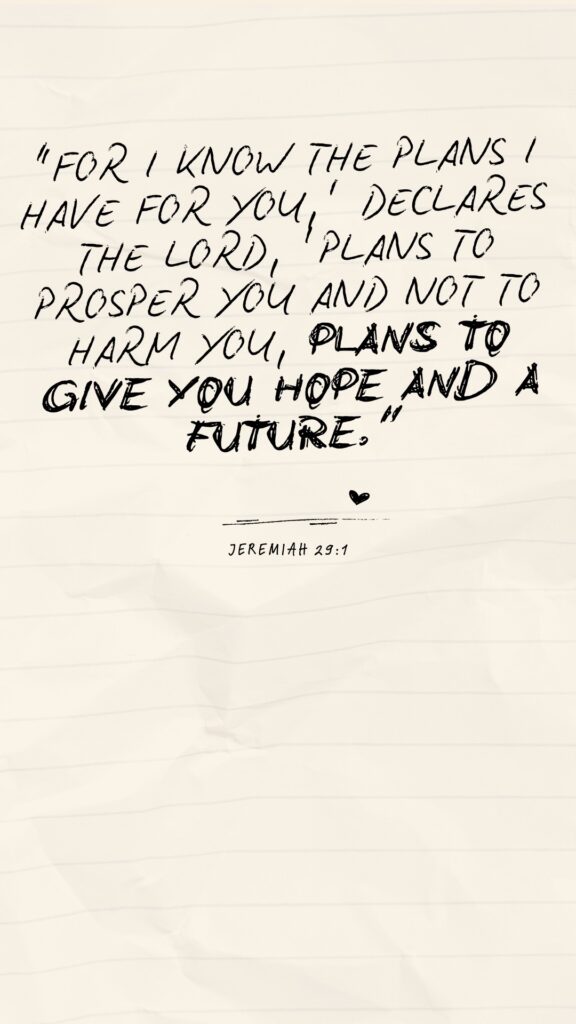 "FOR I KNOW THE PLANS I
HAVE FOR YOU,' DECLARES
THE LORD, 'PLANS TO
PROSPER YOU AND NOT TO
HARM YOU, PLANS TO
GIVE YOU HOPE AND A
FUTURE."
JEREMIAH 29:1